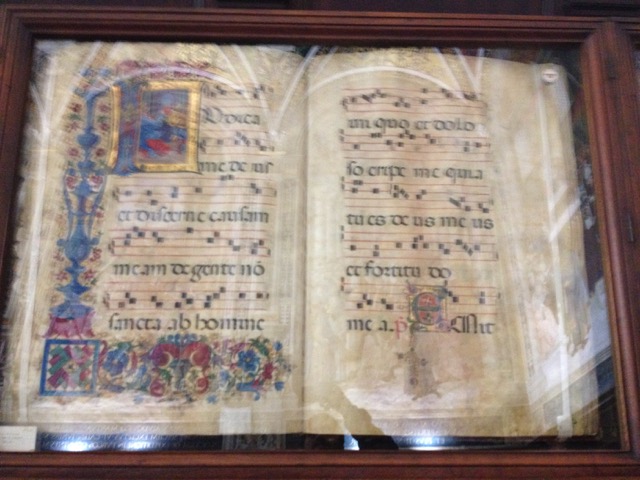 Iudica
me de us
et discerne causam
meam de gente nō
sancta ab homine
iniquo et dolo
so eripe me quia
tu es de us me us
et fortitu do
me a. p Emit